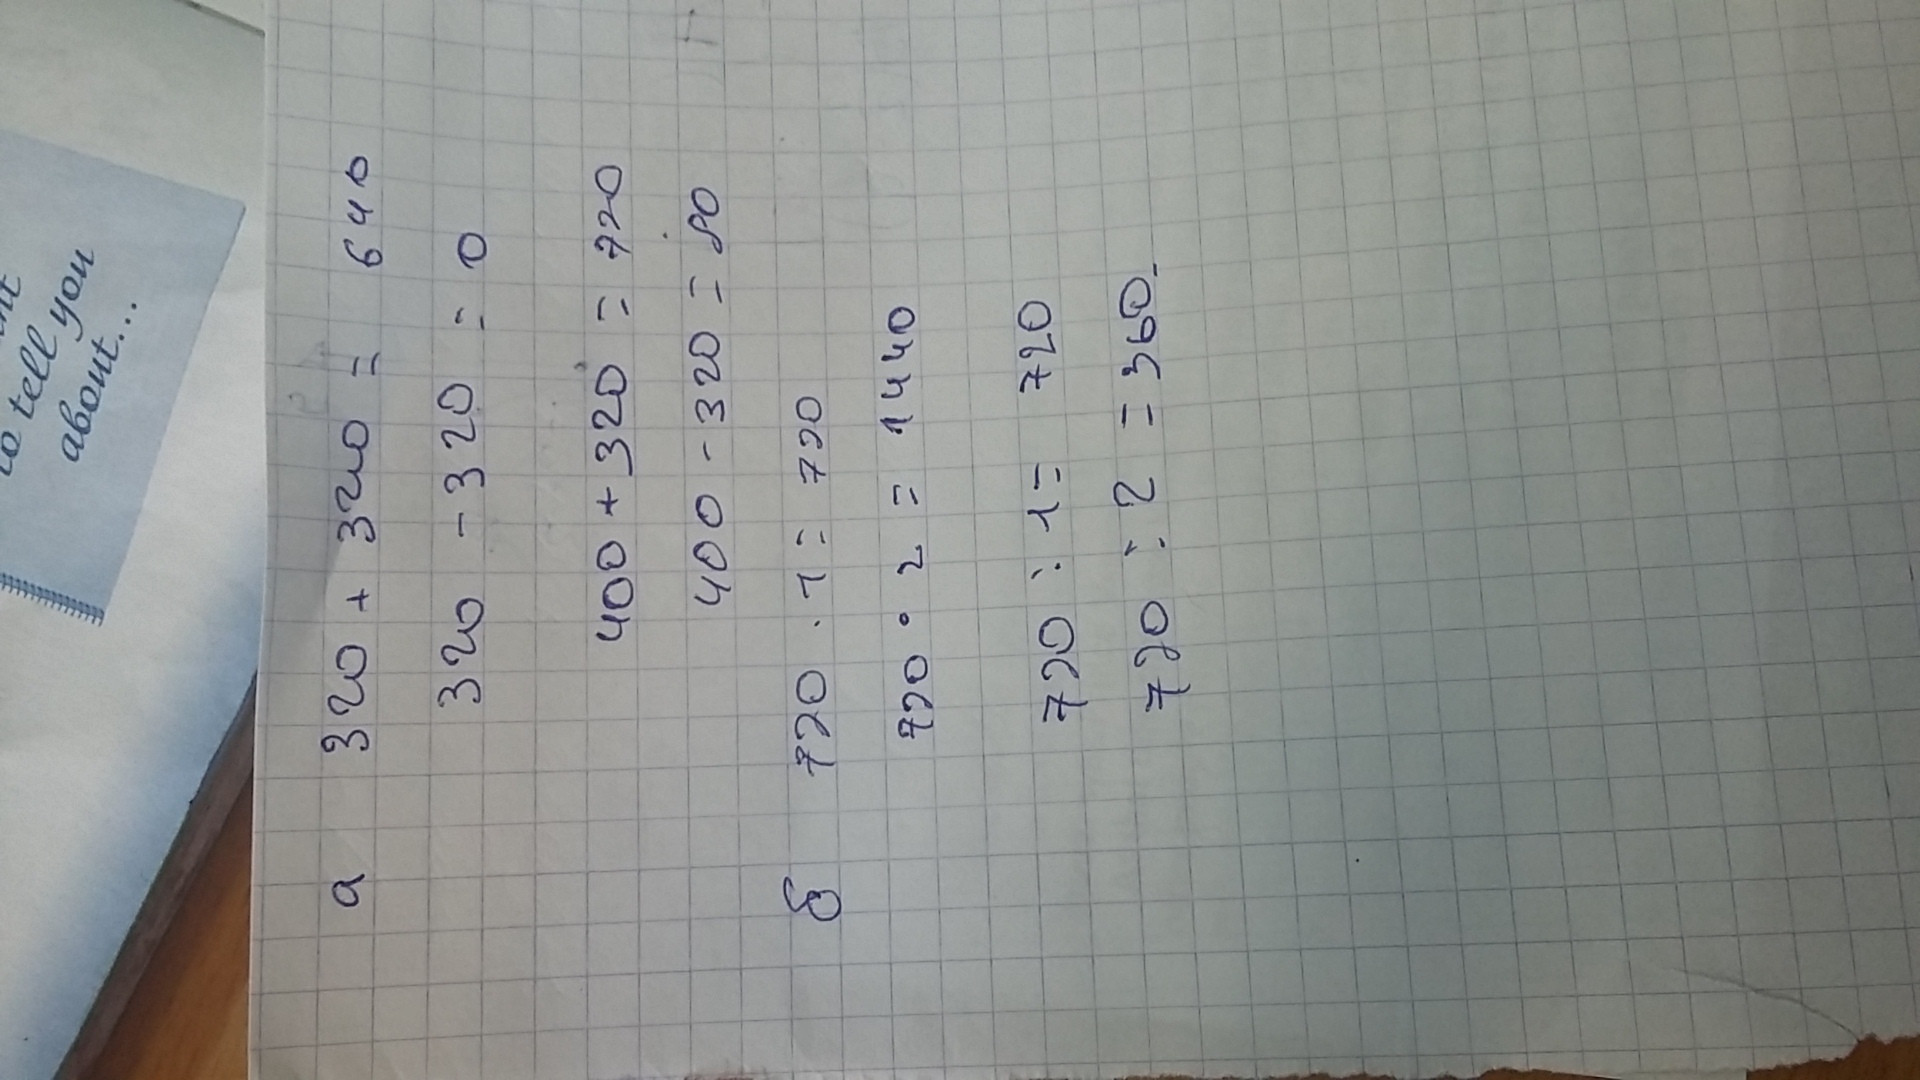 а 320 + 320 = 640
320 - 320 = 0
400 + 320 = 720
400 - 320 = 80
б 720 · 1 = 720
720 · 2 = 1440
720 : 1 = 720
720 : 2 = 360
to tell you
about...